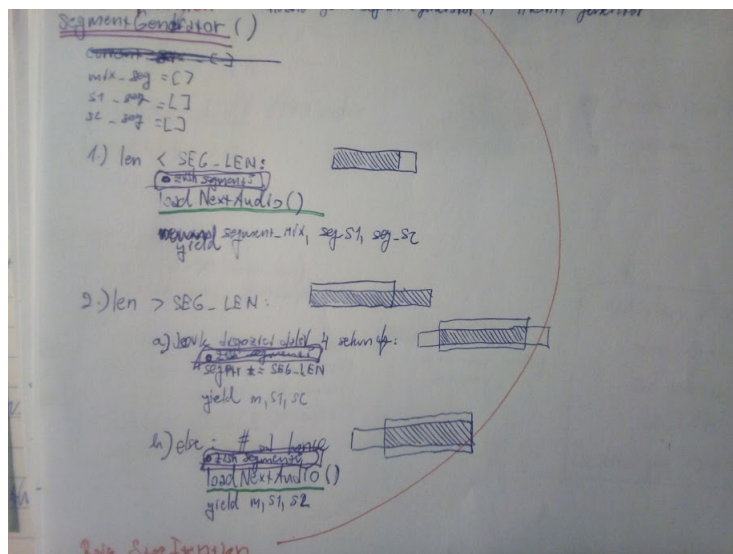 SegmentGenerator()
mix_seg = []
s1_seg = []
s2_seg = []
1.) len < SEG_LEN:
• získ segment
loadNextAudio()
yield segment_mix, seg_s1, seg_s2
2.) len > SEG_LEN:
a.) 4 sekundy:
• získ segment
SEG_LEN
yield m, s1, s2
b.) else: # od konce
• získ segmenty
loadNextAudio()
yield m, s1, s2